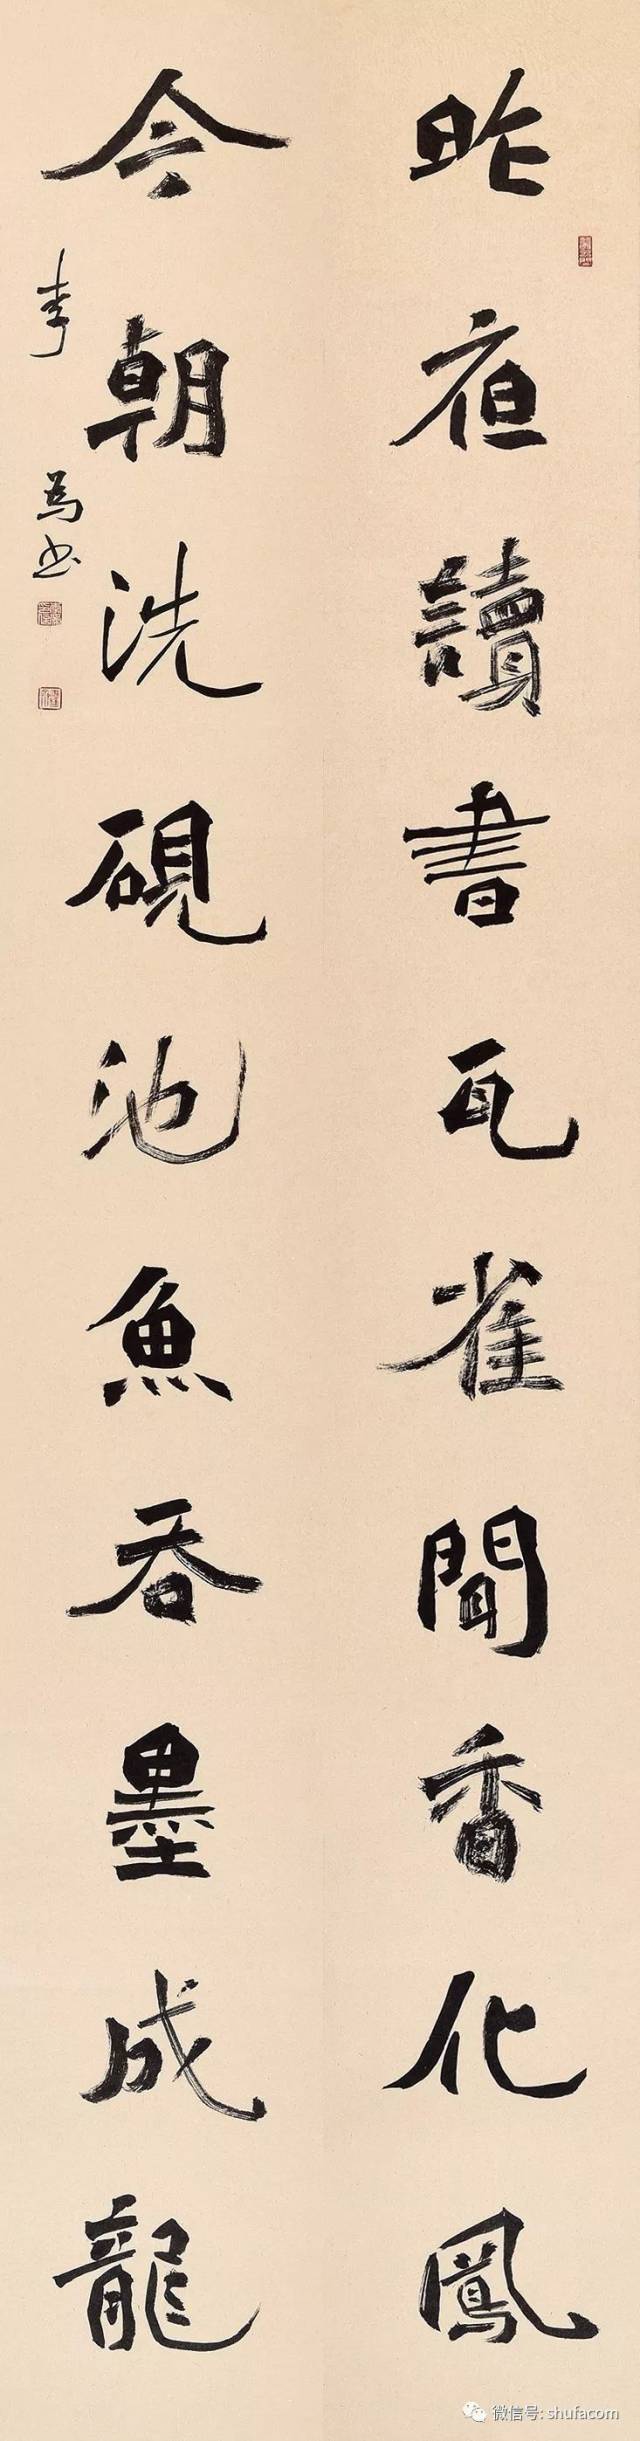 昨夜讀書瓦雀聞香化鳳
今朝洗硯池魚吞墨成龍
李 為书
微信号: shufacom